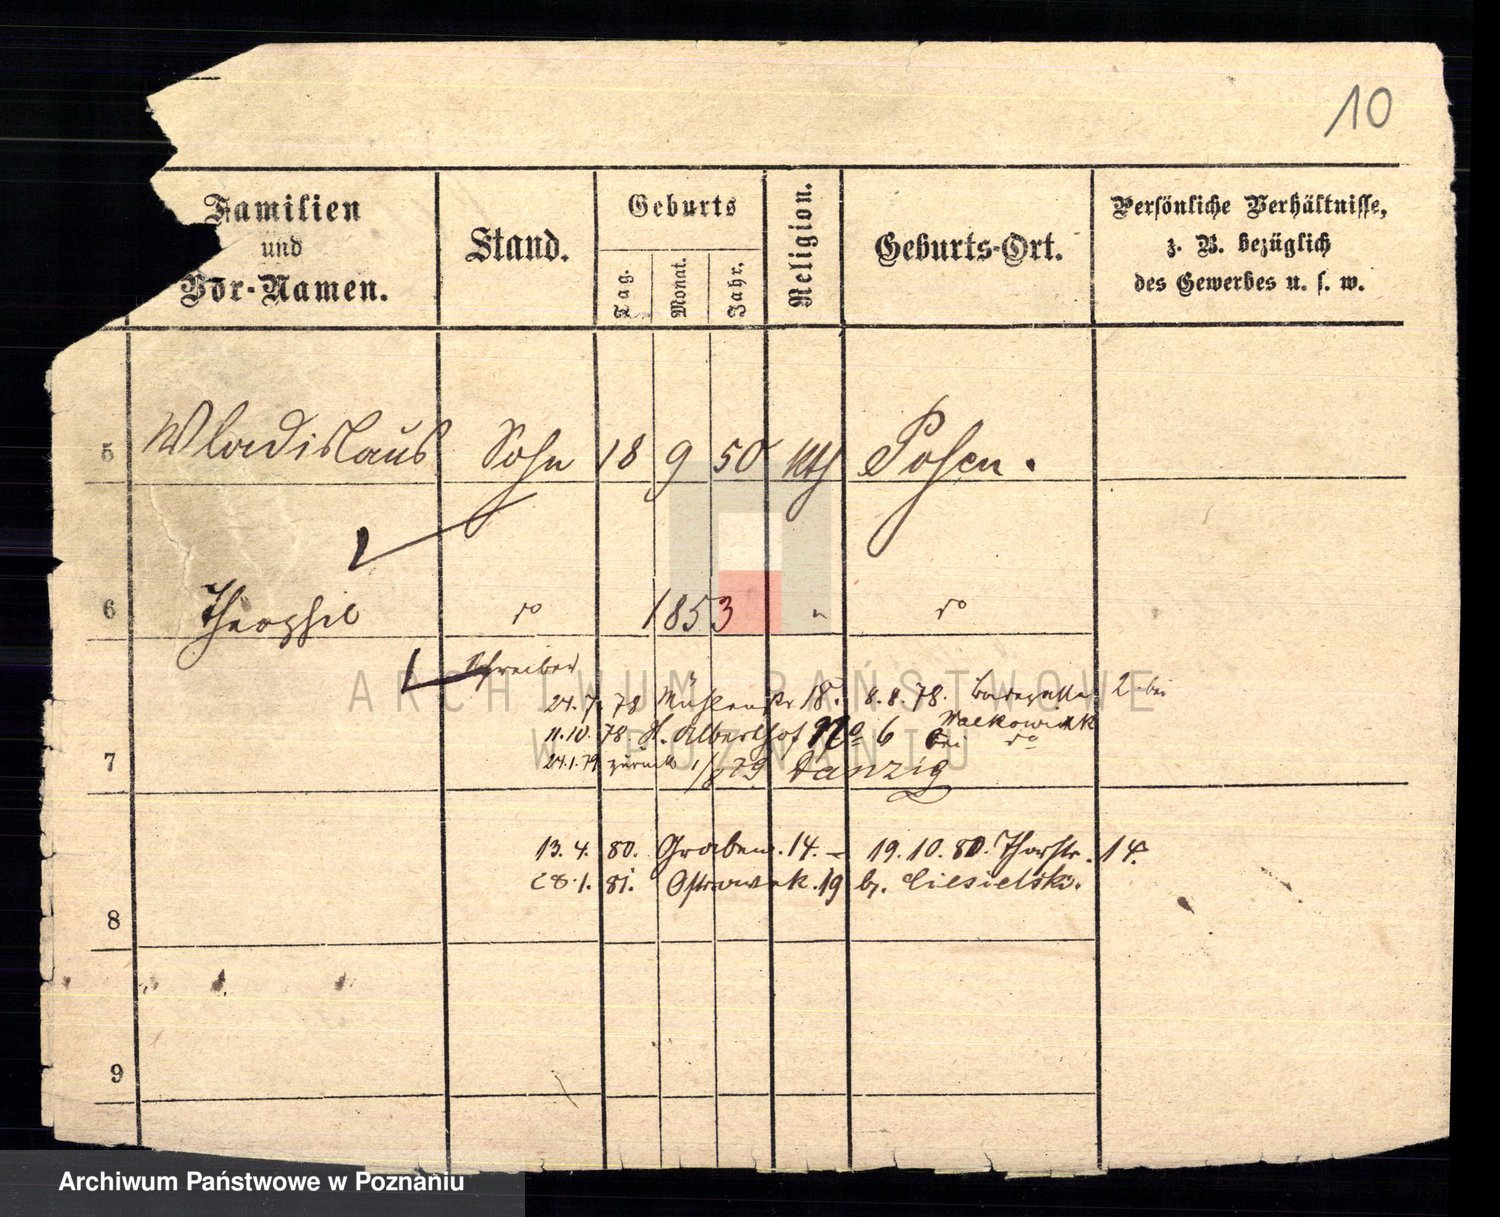 10
Familien
und
Vor-Namen.
Stand.
Geburts
Tag.
Monat.
Jahr.
Religion.
Geburts-Ort.
Persönliche Verhältnisse,
z. B. bezüglich
des Gewerbes u. s. w.
5 Wladislaus Sohn 18 9 50 kth Posen.
6 Theophil do 1853 " do
Schreiber
24.7.78 Mühlenstr 18. 8.8.78. 2. bei
Walkowiak
11.10.78 H. Alberthof No 6 bei do
7 24.1.79 zurück 1/8 79 Danzig
13.4.80. Graben. 14. – 19.10.80. Thorstr. 14.
28.1.81. Ostrowek. 19 b. Ciesielski.
8
9
ARCHIWUM PAŃSTWOWE
W POZNANIU
Archiwum Państwowe w Poznaniu